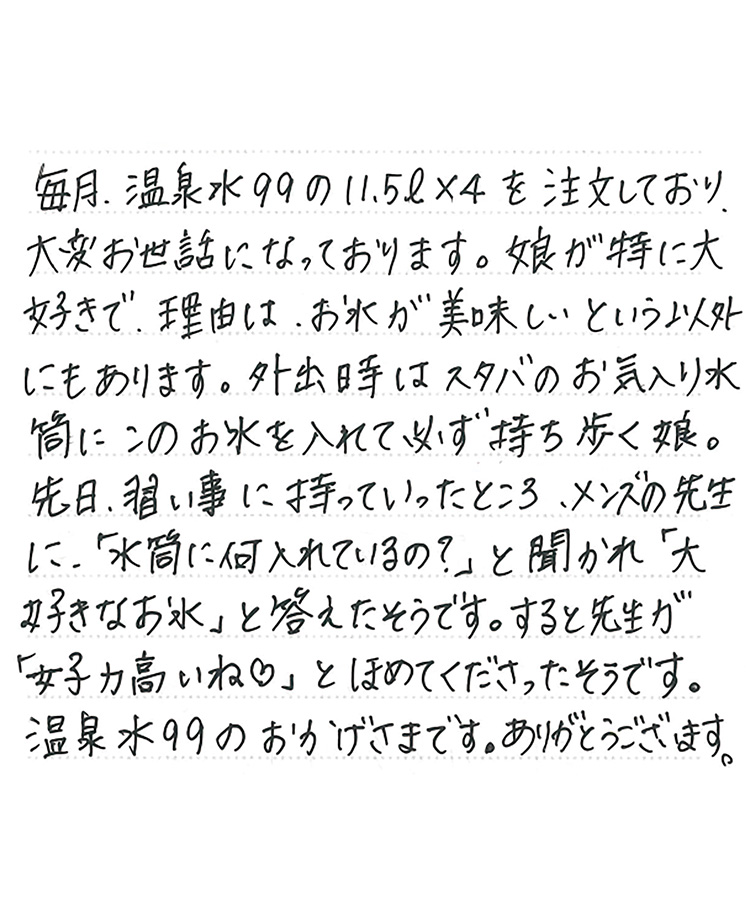 毎月、温泉水99の11.5ℓ×4を注文しており、
大変お世話になっております。娘が特に大
好きで、理由は、お水が美味しいという以外
にもあります。外出時はスタバのお気入り水
筒にこのお水を入れて必ず持ち歩く娘。
先日、習い事に持っていったところ、メンズの先生
に、「水筒に何入れているの?」と聞かれ「大
好きなお水」と答えたそうです。すると先生が
「女子力高いね♡」とほめてくださったそうです。
温泉水99のおかげさまです。ありがとうございます。